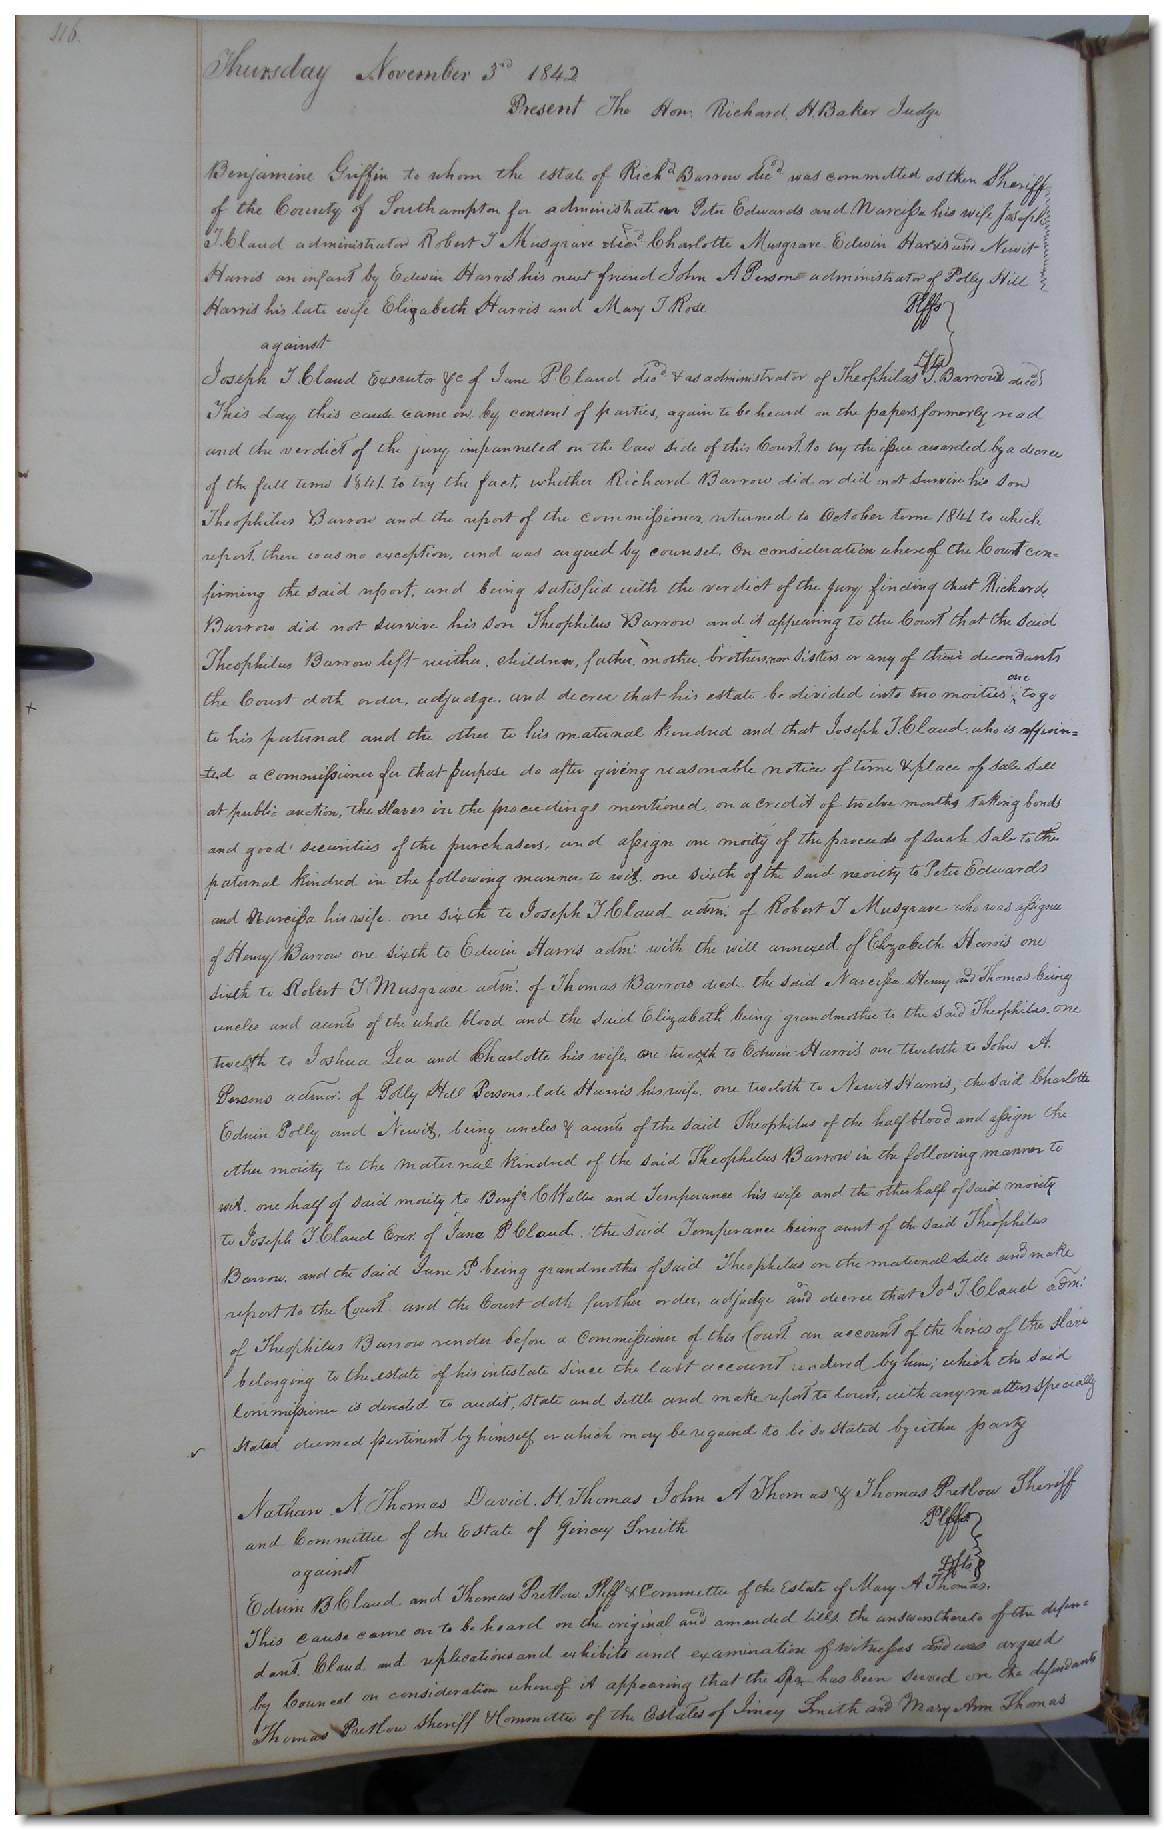 116.
Thursday November 3d 1842
Present The Hon. Richard. H. Baker Judge
Benjamine Griffin to whom the estate of Richd Barrow decd was committed as then Sheriff
of the County of Southampton for administration Peter Edwards and Narcissa his wife Joseph
T. Claud administrator Robert T Musgrave decd Charlotte Musgrave Edwin Harris and Newit
Harris an infant by Edwin Harris his next friend John A Persons administrator of Polly Hill
Harris his late wife Elizabeth Harris and Mary T Rose Plffs
against
Dfts
Joseph T. Claud Executor &c of Jane P Claud decd & as administrator of Theophilas T. Barrow decd
This day this cause came on by consent of parties, again to be heard on the papers formerly read
and the verdict of the jury impanneled on the law side of this Court to try the issue awarded by a decree
of the fall term 1841 to try the fact, whether Richard Barrow did or did not survive his son
Theophilus Barrow and the report of the commissioner returned to October term 1841 to which
report there was no exception, and was argued by counsel. On consideration whereof the Court con-
firming the said report, and being satisfied with the verdict of the jury finding that Richard
Barrow did not survive his son Theophilus Barrow and it appearing to the Court that the said
Theophilus Barrow left neither, children, father, mother, brothers nor sisters or any of their decendants
the Court doth order, adjudge. and decree that his estate be divided into two moities one to go
to his paternal and the other to his maternal kindred and that Joseph T. Claud. who is appoin=
=ted a commissioner for that purpose do after giving reasonable notice of time & place of sale sell
at public auction, the slaves in the proceedings mentioned on a credit of twelve months taking bonds
and good securities of the purchasers, and assign one moity of the proceeds of such sale to the
paternal kindred in the following manner to wit. one sixth of the said moiety to Peter Edwards
and Narcissa his wife. one sixth to Joseph T. Claud adm. of Robert T Musgrave who was assignee
of Henry Barrow one sixth to Edwin Harris adm. with the will annexed of Elizabeth Harris one
sixth to Robert T Musgrave adm. of Thomas Barrow decd. the said Narcissa Henry and Thomas being
uncles and aunts of the whole blood and the said Elizabeth being grandmother to the said Theophilas. one
twelfth to Joshua Lea and Charlotte his wife, one twelfth to Edwin Harris one twelvth to John A.
Persons admr. of Polly Hill Persons late Harris his wife. one twelvth to Newit Harris, the said Charlotte
Edwin Polly and Newit, being uncles & aunts of the said Theophilus of the half blood and assign the
other moiety to the maternal kindred of the said Theophilus Barrow in the following manner to
wit. one half of said moiety to Benja. C Waller and Temperance his wife and the other half of said moiety
to Joseph T Claud Exer. of Jane P Claud. the said Temperance being aunt of the said Theophilus
Barrow. and the said Jane P being grandmother of said Theophilus on the maternal side and make
report to the Court and the Court doth further order, adjudge and decree that Jos T. Claud adm.
of Theophilus Barrow render before a Commissioner of this Court an account of the hires of the slaves
belonging to the estate of his intestate since the last account rendered by him; which the said
Commissioner is directed to audit, state and settle and make report to court, with any matters specially
stated deemed pertinent by himself or which may be required to be so stated by either party
Nathan N. Thomas David. H. Thomas John A Thomas & Thomas Pretlow Sheriff
and Committee of the Estate of Gincy Smith Plffs
against
Dfts
Edwin B Claud and Thomas Pretlow Shff & Committee of the Estate of Mary A Thomas.
This cause came on to be heard on the original and amended bills. the answers thereto of the defen=
dant. Claud. and replications and exhibits and examination of witnesses and was argued
by Council on consideration whereof it appearing that the Spa has been served on the defendants
Thomas Pretlow Sheriff & Committee of the Estates of Jincy Smith and Mary Ann Thomas